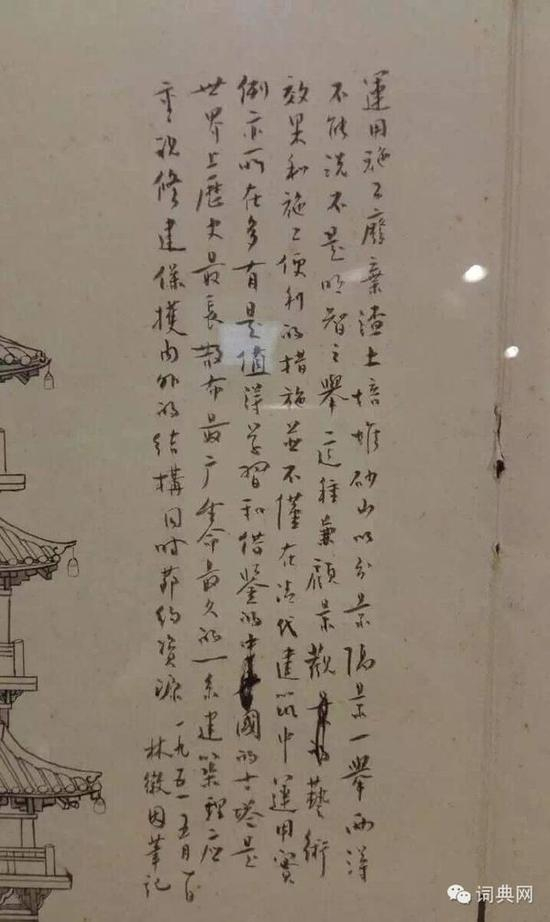 運用施工廢棄渣土培堆砂山以分景隔景一舉兩得
不能说不是明智之舉這種兼顧景觀藝術
效果和施工便利的措施並不僅在清代建筑中運用實
例亦所在多有是值得学習和借鉴的中國的古塔是
世界上歷史最長散布最广生命最久的一系建築理应
重視修建保護内外的结構同时節约资源一九五一五月
林徽因筆記
词典网